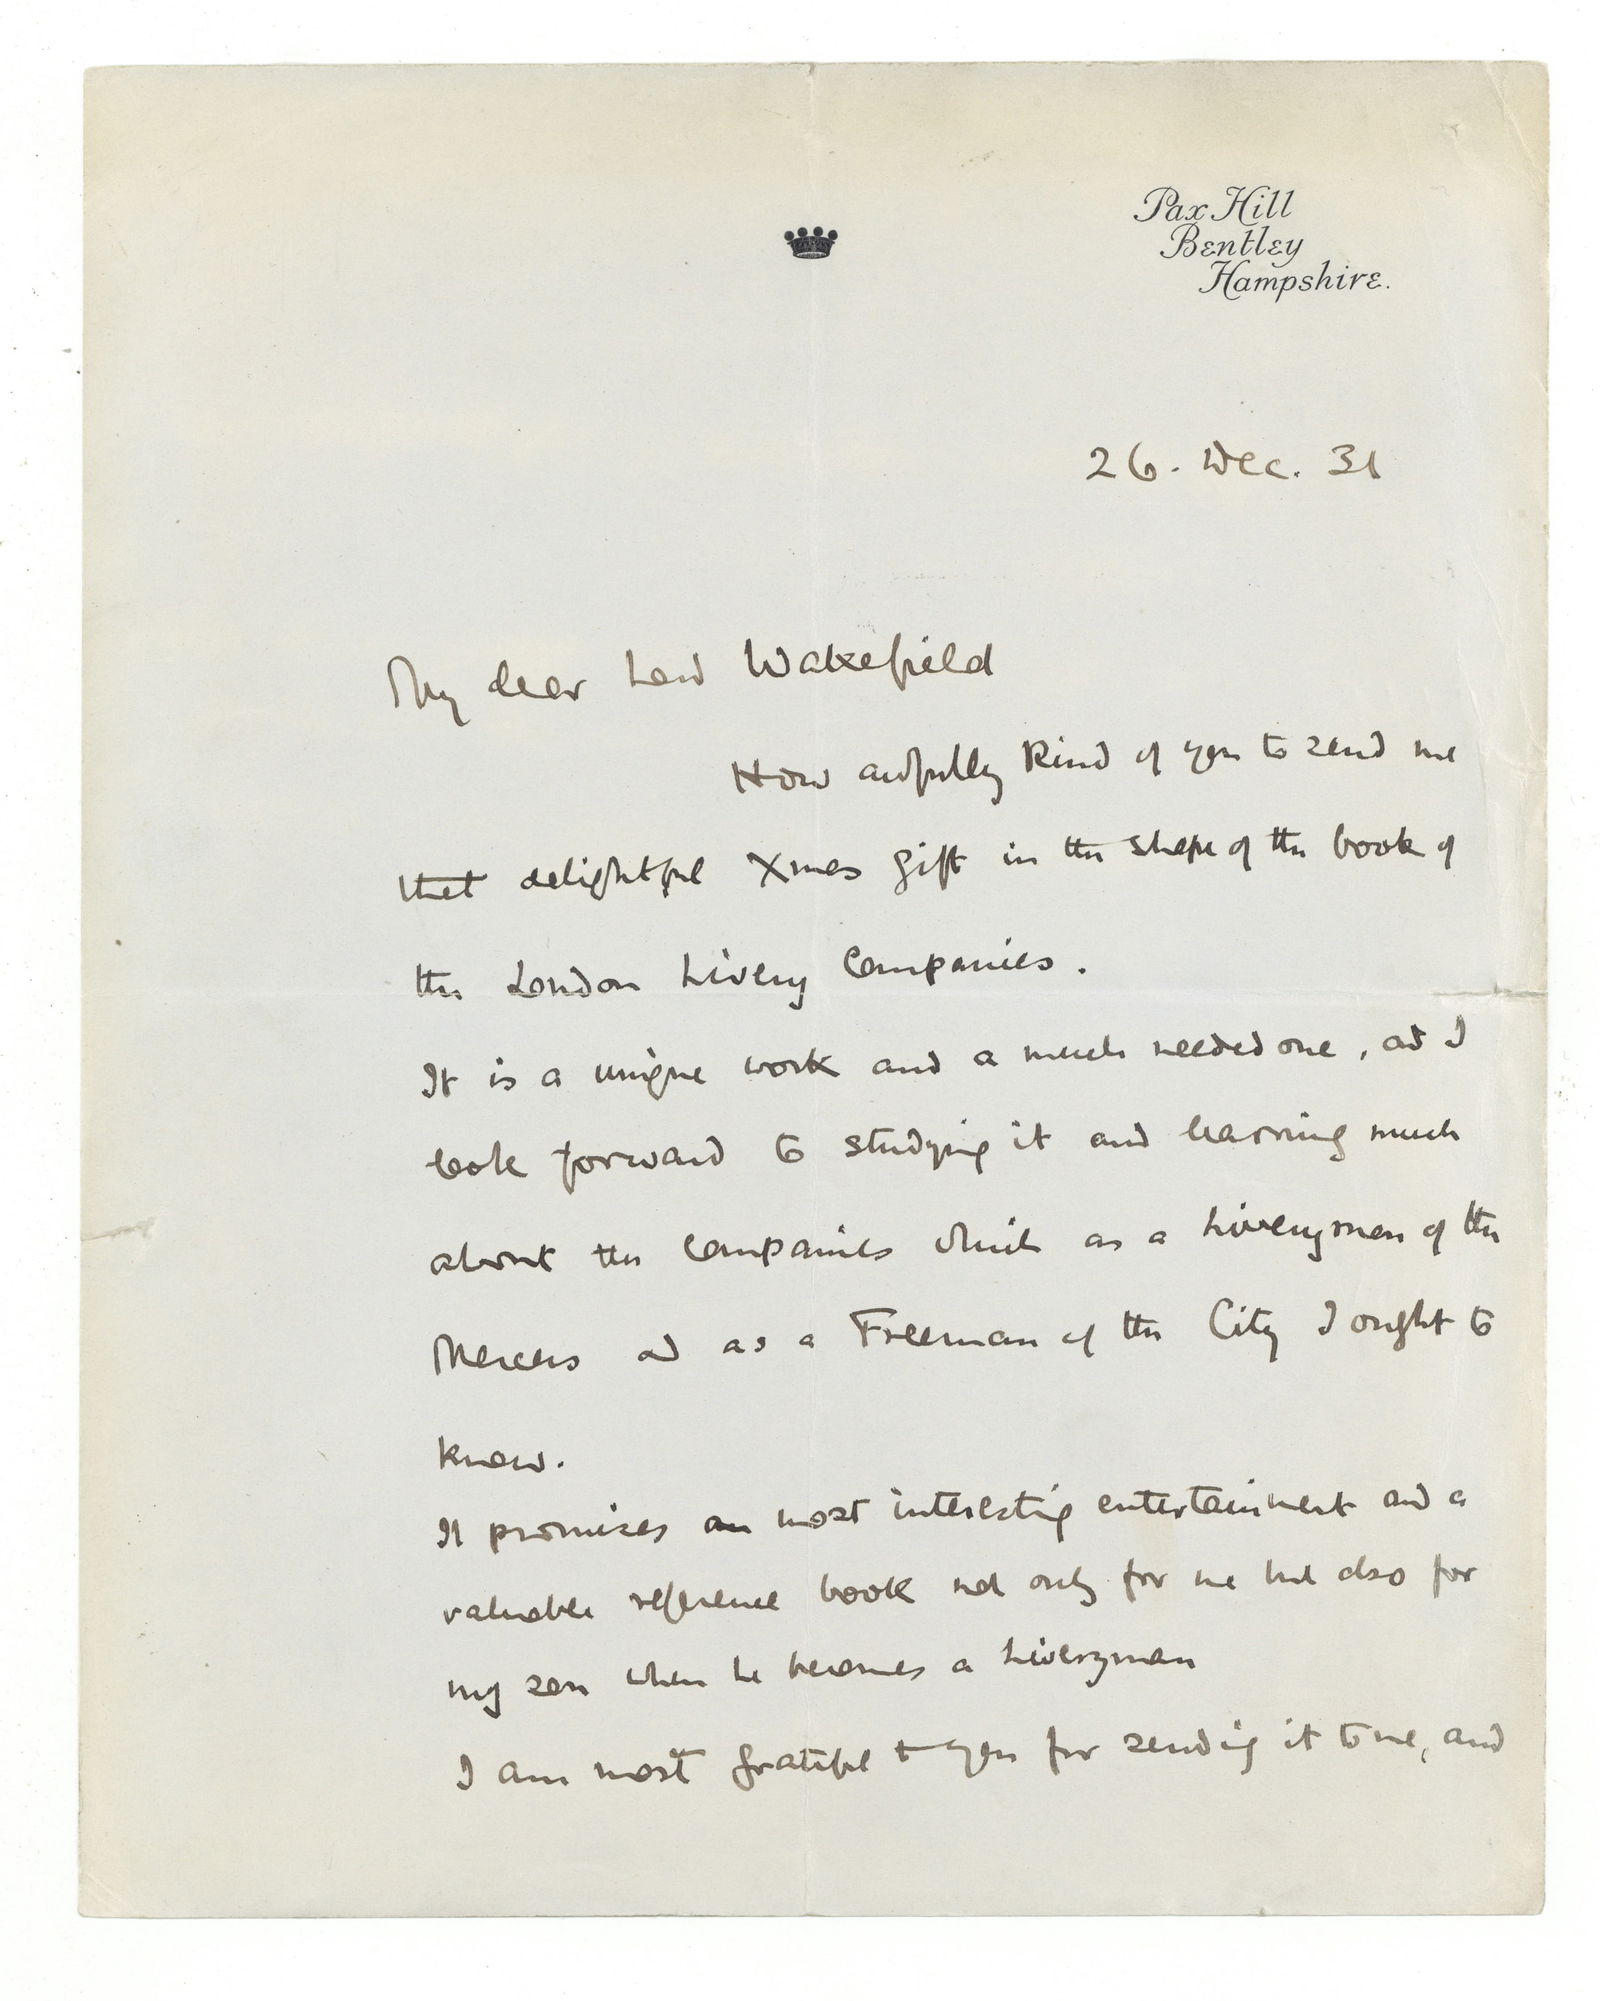 Pax Hill
Bentley
Hampshire.
26. Dec. 31
My dear Lord Wakefield
How awfully kind of you to send me
that delightful Xmas gift in the shape of the book of
the London Livery Companies.
It is a unique work and a much needed one, ad I
look forward to studying it and learning much
about the Companies which as a Liveryman of the
Mercers ad as a Freeman of the City I ought to
know.
It promises an most interesting entertainment and a
valuable reference book not only for me but also for
my son when he becomes a Liveryman
I am most grateful to you for sending it to me, and